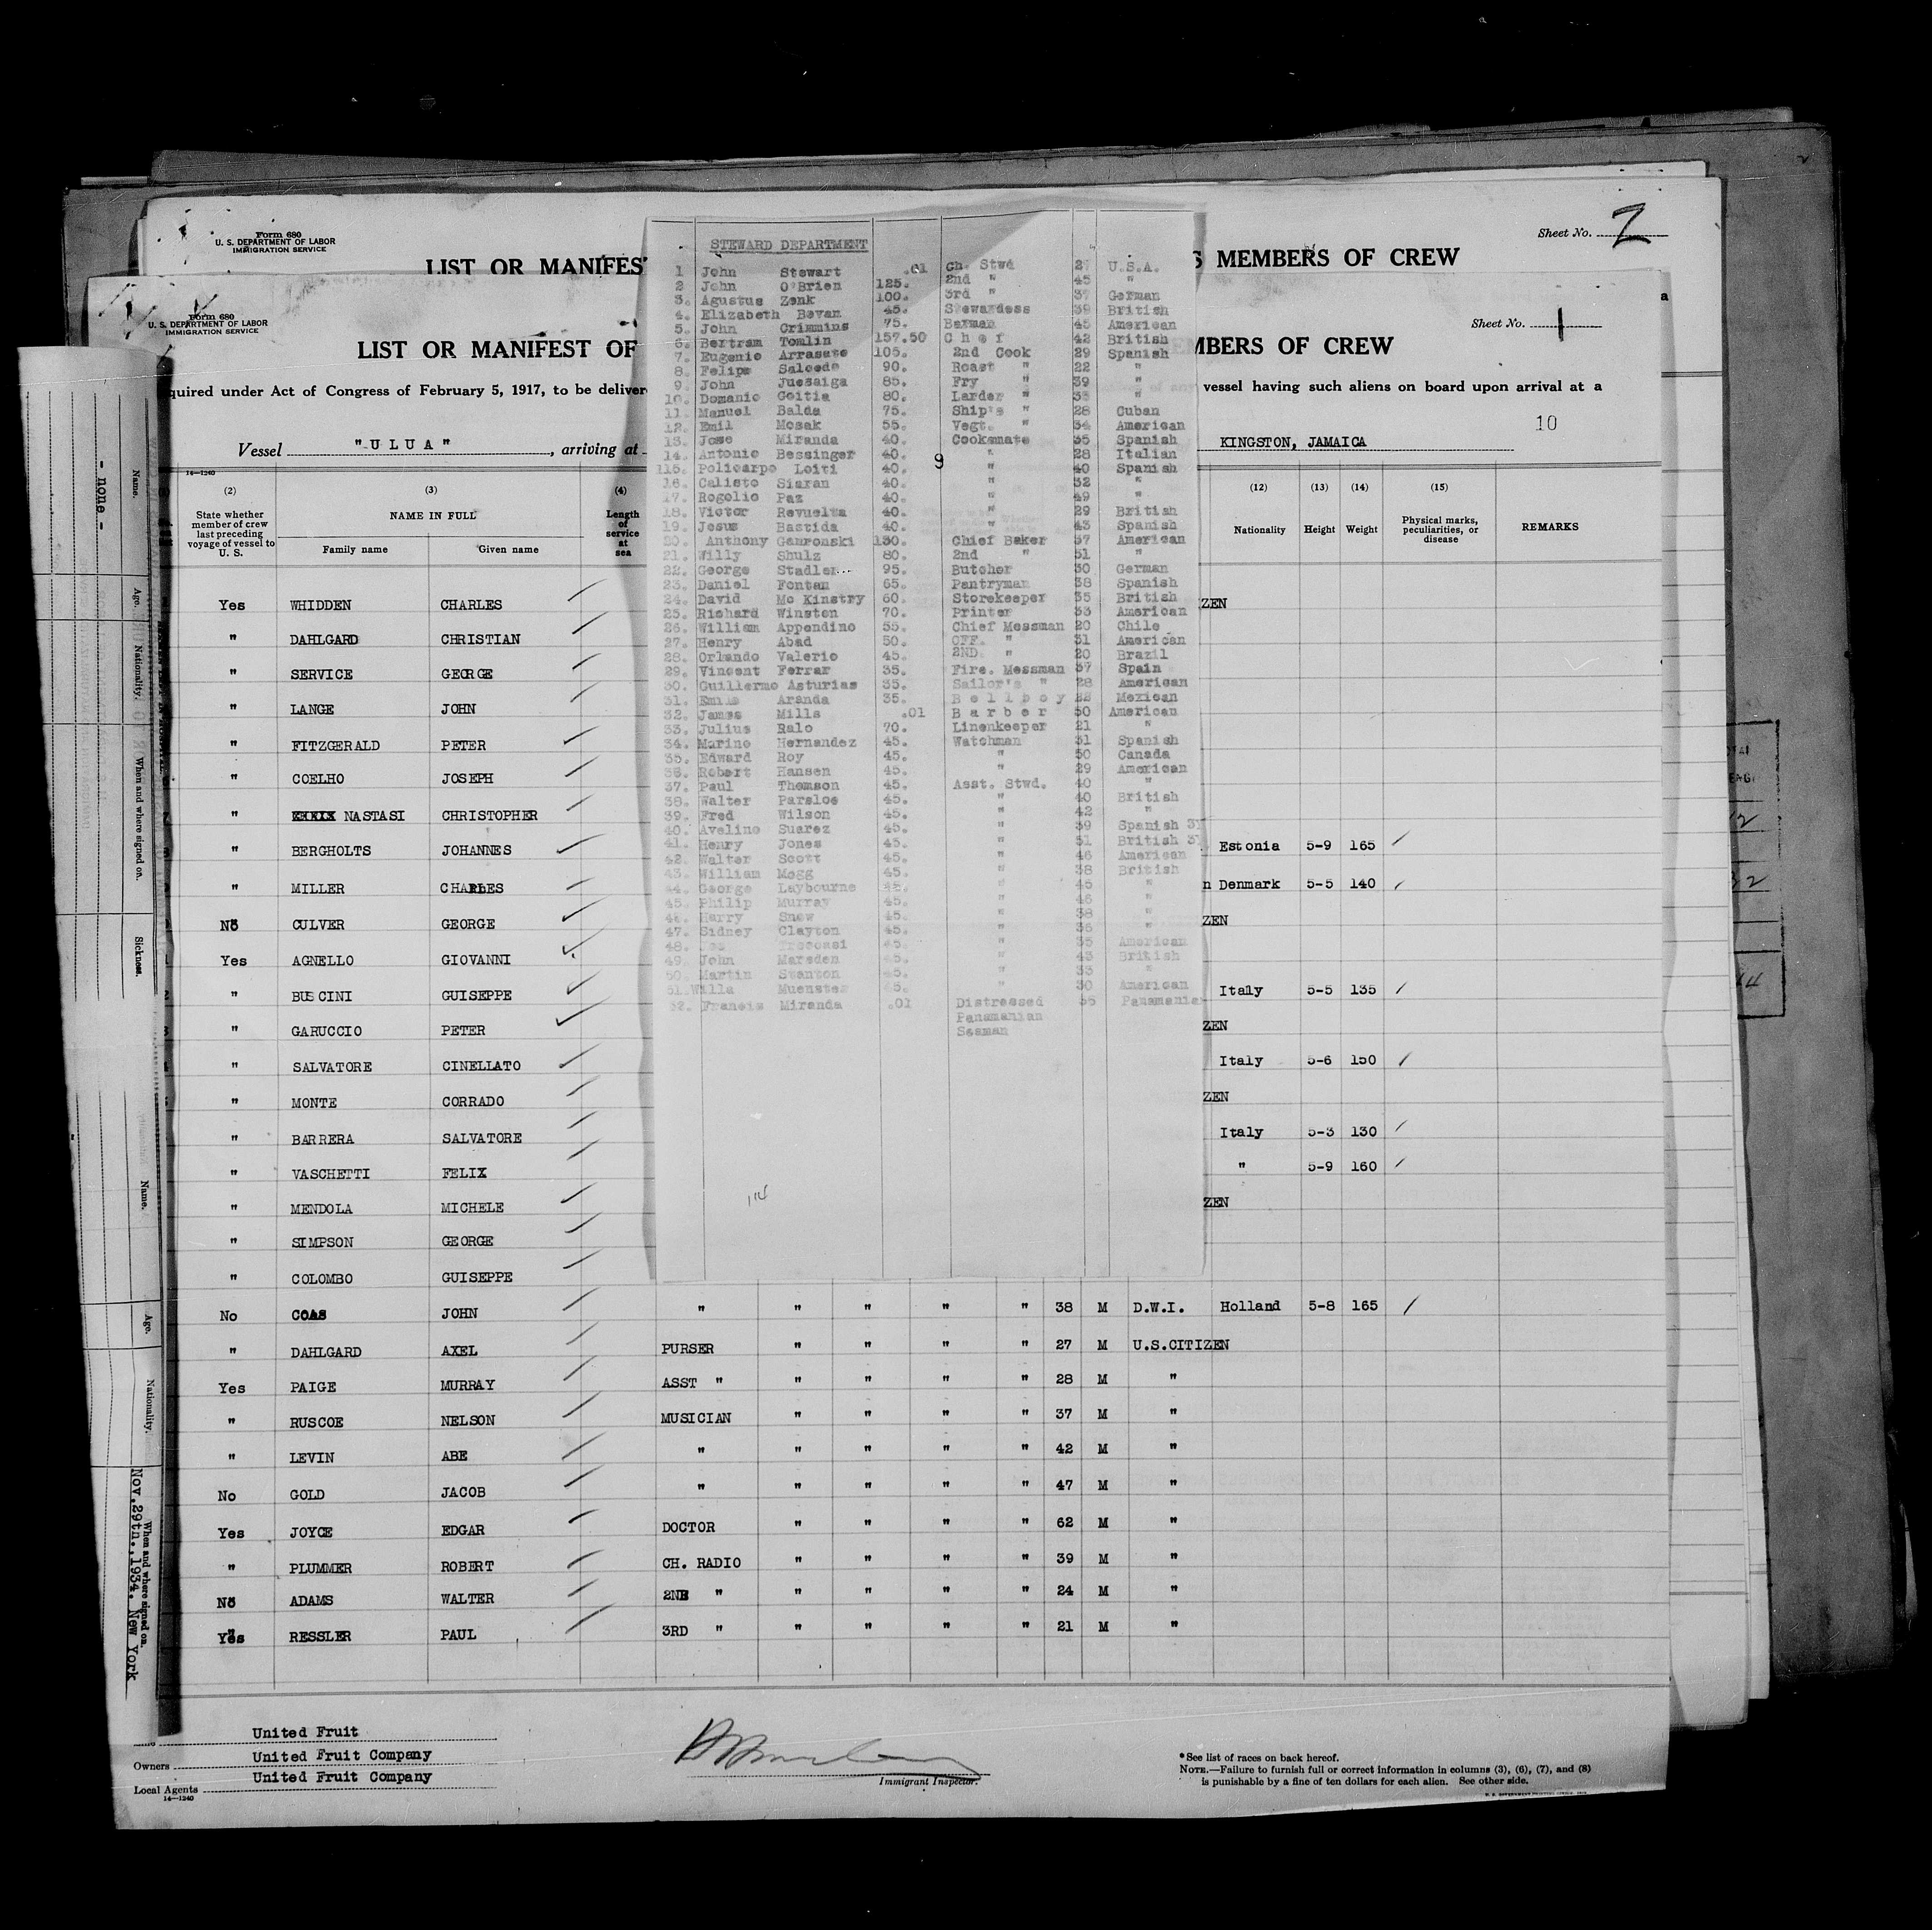 Form 680
U. S. DEPARTMENT OF LABOR
IMMIGRATION SERVICE
Sheet No. 2
LIST OR MANIFES
S MEMBERS OF CREW
Form 680
U. S. DEPARTMENT OF LABOR
IMMIGRATION SERVICE
Sheet No. 1
LIST OR MANIFEST OF
MBERS OF CREW
quired under Act of Congress of February 5, 1917, to be deliver
vessel having such aliens on board upon arrival at a
10
Vessel "ULUA", arriving at
KINGSTON, JAMAICA
14-1240
(2) (3) (4) (12) (13) (14) (15)
State whether member of crew last preceding voyage of vessel to U. S.
NAME IN FULL
Family name Given name
Length of service at sea
Nationality Height Weight Physical marks, peculiarities, or disease REMARKS
STEWARD DEPARTMENT
1 John Stewart .01 Ch. Stwd 27 U.S.A.
2 John O'Brien 125. 2nd " 45 "
3. Agustus Zenk 100. 3rd " 37 German
4. Elizabeth Bevan 45. Stewardess 39 British
5. John Crimmins 75. Barman 45 American
6. Bertram Tomlin 157.50 Chef 42 British
7. Eugenio Arrasate 105. 2nd Cook 29 Spanish
8. Felipe Salcede 90. Roast " 22 "
9. John Juesaiga 85. Fry " 39 "
10. Domanic Goitia 80. Larder " "
11. Manuel Balda 75. Ship's " 28 Cuban
12. Emil Mosak 55. Vegt. " 54 American
13. Jose Miranda 40. Cooksmate 35 Spanish
14. Antonio Bessinger 40. " 28 Italian
115. Policarpo Loiti 40. 9 " 40 Spanish
16. Calisto Siaran 40. " 32 "
17. Rogolio Paz 40. " 49 "
18. Victor Revuelta 40. " 29 British
19. Jesus Bastida 40. " 43 Spanish
20. Anthony Gamronski 130. Chief Baker 57 American
21. Willy Shulz 80. 2nd " 51 "
22. George Stadler... 95. Butcher 30 German
23. Daniel Fontan 65. Pantryman 38 Spanish
24. David Mc Kinstry 60. Storekeeper 35 British
25. Richard Winston 70. Printer 33 American
26. William Appendino 55. Chief Messman 20 Chile
27. Henry Abad 50. OFF. " 31 American
28. Orlando Valerio 45. 2ND. " 20 Brazil
29. Vincent Ferrar 35. Fire. Messman 37 Spain
30. Guillermo Asturias 35. Sailor's " 28 American
31. Aranda 35. Bellboy 22 Mexican
32. James Mills .01 Barber 50 American
33. Julius Ralo 70. Linenkeeper 21 "
34. Marino Hernandez 45. Watchman 31 Spanish
35. Edward Roy 45. " 50 Canada
36. Robert Hansen 45. " 29 American
37. Paul Thomson 45. Asst. Stwd. 40 "
38. Walter Parsloe 45. " 40 British
39. Fred Wilson 45. " 42 "
40. Avelino Suarez 45. " 39 Spanish
41. Henry Jones 45. " 51 British
42. Walter Scott 45. " 46 American
43. William Mogg 45. " 38 British
44. George Laybourne 45. " 45 "
45. Philip Murray 45. " 46 "
46. Harry Snow 45. " 38 "
47. Sidney Clayton 45. " 36 "
48. 45. " 35 American
49. John Marsden 45. " 43 British
50. Martin Stanton 45. " 33 "
51. Willa Muenster 45. " 30 American
52. Francis Miranda .01 Distressed 35 Panamania
Panamanian
Seaman
Yes WHIDDEN CHARLES ZEN
" DAHLGARD CHRISTIAN
" SERVICE GEORGE
" LANGE JOHN
" FITZGERALD PETER
" COELHO JOSEPH
" NASTASI CHRISTOPHER
" BERGHOLTS JOHANNES Estonia 5-9 165
" MILLER CHARLES n Denmark 5-5 140
No CULVER GEORGE ZEN
Yes AGNELLO GIOVANNI
" BUSCINI GUISEPPE Italy 5-5 135
" GARUCCIO PETER ZEN
" SALVATORE CINELLATO Italy 5-6 150
" MONTE CORRADO ZEN
" BARRERA SALVATORE Italy 5-3 130
" VASCHETTI FELIX " 5-9 160
" MENDOLA MICHELE ZEN
" SIMPSON GEORGE
" COLOMBO GUISEPPE
No COAS JOHN " " " " " 38 M D.W.I. Holland 5-8 165
" DAHLGARD AXEL PURSER " " " " 27 M U.S.CITIZEN
Yes PAIGE MURRAY ASST " " " " " 28 M "
" RUSCOE NELSON MUSICIAN " " " " 37 M "
" LEVIN ABE " " " " " 42 M "
No GOLD JACOB " " " " " 47 M "
Yes JOYCE EDGAR DOCTOR " " " " 62 M "
" PLUMMER ROBERT CH. RADIO " " " " 39 M "
No ADAMS WALTER 2ND " " " " " 24 M "
Yes RESSLER PAUL 3RD " " " " " 21 M "
114
United Fruit
Owners United Fruit Company
Local Agents United Fruit Company
14-1240
Immigrant Inspector.
*See list of races on back hereof.
NOTE.—Failure to furnish full or correct information in columns (3), (6), (7), and (8)
is punishable by a fine of ten dollars for each alien. See other side.
- none -
Name.
Age.
Nationality.
When and where signed on.
Sickness.
Name.
Age.
Nationality.
When and where signed on.
Nov.29th.,1934. New York